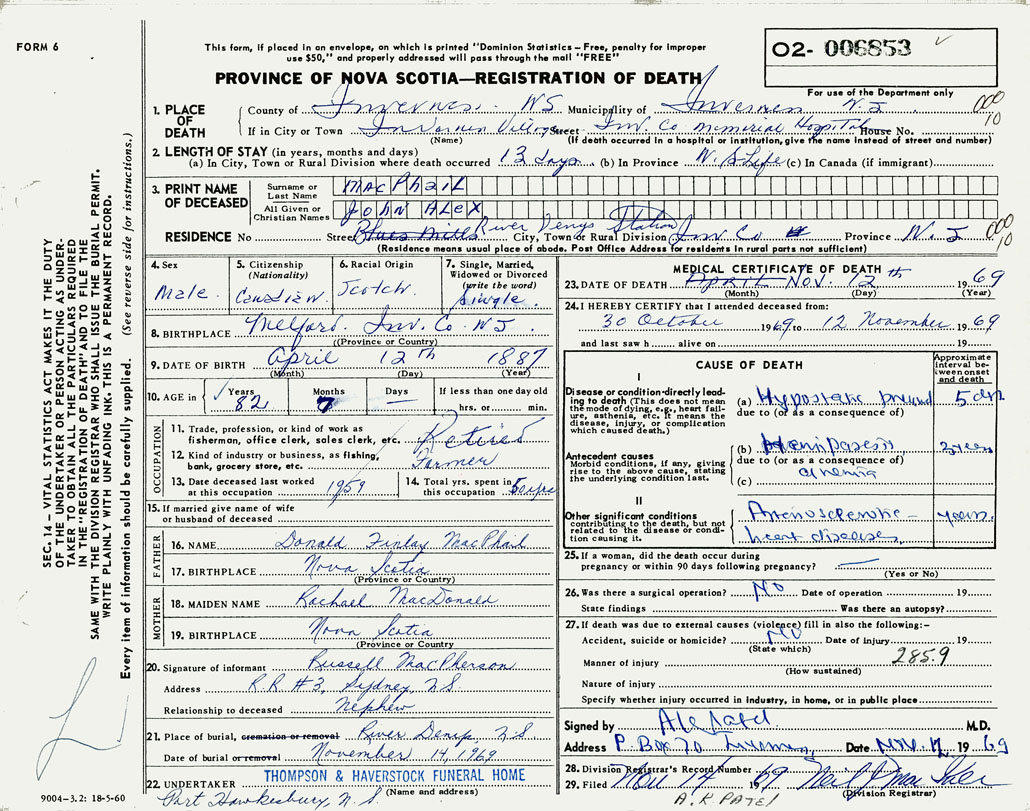 FORM 6
This form, if placed in an envelope, on which is printed "Dominion Statistics – Free, penalty for improper
use $50," and properly addressed will pass through the mail "FREE"
02- 006853
For use of the Department only
PROVINCE OF NOVA SCOTIA—REGISTRATION OF DEATH
1. PLACE OF DEATH
County of Inverness. NS Municipality of Inverness N.S 000 10
If in City or Town Inverness Village Street Inv Co Memorial Hospital House No.
(Name) (If death occurred in a hospital or institution, give the name instead of street and number)
2. LENGTH OF STAY (in years, months and days)
(a) In City, Town or Rural Division where death occurred 13 days (b) In Province N. S Life (c) In Canada (if immigrant)
3. PRINT NAME OF DECEASED
Surname or Last Name MacPhail
All Given or Christian Names John Alex
RESIDENCE No Street Blues Mills River Denys Station City, Town or Rural Division Inv Co Province N. S 000 10
(Residence means usual place of abode. Post Office Address for residents in rural parts not sufficient)
4. Sex Male.
5. Citizenship (Nationality) Canadian
6. Racial Origin Scotch
7. Single, Married, Widowed or Divorced (write the word) Single
8. BIRTHPLACE Melford. Inv. Co NS
(Province or Country)
9. DATE OF BIRTH April 12th 1887
(Month) (Day) (Year)
10. AGE in Years 82 Months 7 Days — If less than one day old hrs. or min.
OCCUPATION
11. Trade, profession, or kind of work as fisherman, office clerk, sales clerk, etc. Retired
12. Kind of industry or business, as fishing, bank, grocery store, etc. Farmer
13. Date deceased last worked at this occupation 1959
14. Total yrs. spent in this occupation 50 yrs
15. If married give name of wife or husband of deceased
FATHER
16. NAME Donald Finlay MacPhail
17. BIRTHPLACE Nova Scotia
(Province or Country)
MOTHER
18. MAIDEN NAME Rachael MacDonald
19. BIRTHPLACE Nova Scotia
(Province or Country)
20. Signature of informant Russell MacPherson
Address R.R #3, Sydney, NS
Relationship to deceased Nephew
21. Place of burial, cremation or removal River Denys, N.S
Date of burial or removal November 14, 1969
22. UNDERTAKER THOMPSON & HAVERSTOCK FUNERAL HOME
Port Hawkesbury, N. S. (Name and address)
9004-3.2: 18-5-60
MEDICAL CERTIFICATE OF DEATH
23. DATE OF DEATH April Nov. 12th 1969
(Month) (Day) (Year)
24. I HEREBY CERTIFY that I attended deceased from:
30 October 1969 to 12 November 1969
and last saw h alive on 19
CAUSE OF DEATH
Approximate interval between onset and death
I
Disease or condition directly leading to death (This does not mean the mode of dying, e.g., heart failure, asthenia, etc. it means the disease, injury, or complication which caused death.)
(a) Hypostatic 5 days
due to (or as a consequence of)
Antecedent causes
Morbid conditions, if any, giving rise to the above cause, stating the underlying condition last.
(b) Hemiparesis
due to (or as a consequence of)
anemia
(c)
II
Other significant conditions
contributing to the death, but not related to the disease or condition causing it.
Arteriosclerotic – heart disease. years.
25. If a woman, did the death occur during pregnancy or within 90 days following pregnancy? —
(Yes or No)
26. Was there a surgical operation? No Date of operation 19
State findings Was there an autopsy?
27. If death was due to external causes (violence) fill in also the following:-
Accident, suicide or homicide? No Date of injury 19
(State which)
285.9
Manner of injury
(How sustained)
Nature of injury
Specify whether injury occurred in industry, in home, or in public place
Signed by M.D.
Address P. Box 70 Inverness, Date Nov. 1969
28. Division Registrar's Record Number
29. Filed Nov 14 1969
(Division Registrar)
A. K PATEL
SEC. 14 – VITAL STATISTICS ACT MAKES IT THE DUTY
OF THE UNDERTAKER OR PERSON ACTING AS UNDER-
TAKER TO OBTAIN ALL THE PARTICULARS REQUIRED
IN THE "REGISTRATION OF DEATH" AND TO FILE THE
SAME WITH THE DIVISION REGISTRAR WHO SHALL ISSUE THE BURIAL PERMIT.
WRITE PLAINLY WITH UNFADING INK. THIS IS A PERMANENT RECORD.
Every item of information should be carefully supplied. (See reverse side for instructions.)